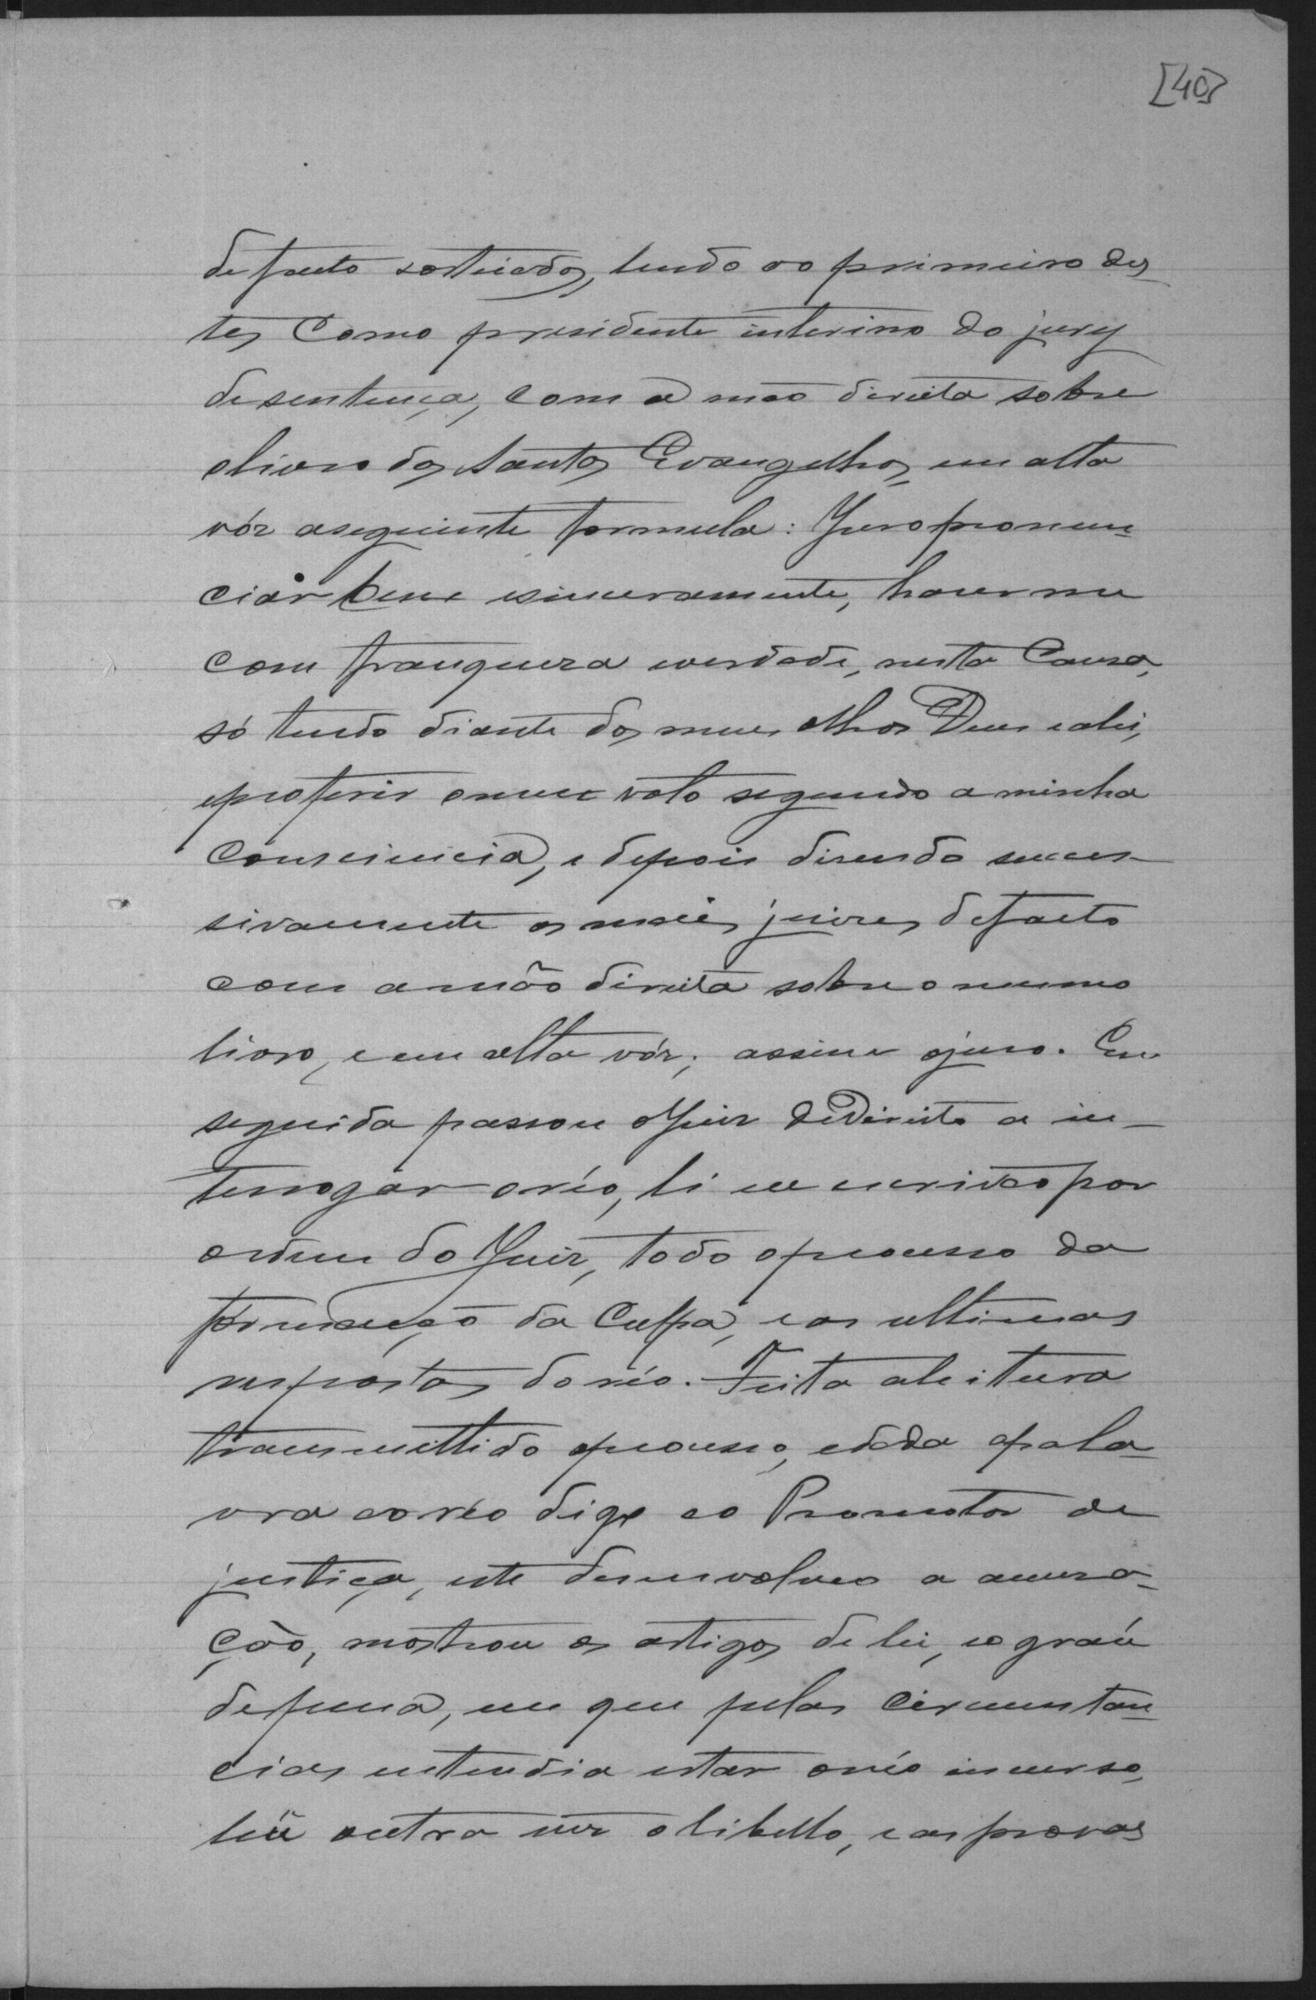 [40]
de facto sorteados, lendo o primeiro des-
tes como presidente interino do jury
de sentença, com a mão direita sobre
o livro dos Santos Evangelhos, em alta
vóz a seguinte formula: Juro pronun-
ciár bem e sinceramente, haver me
com franqueza e verdade, nesta Causa,
só tendo diante dos meus olhos Deus e a lei,
e proferir o meu voto segundo a minha
consciencia, e depois disendo succes-
sivamente os mais juizes de facto
com a mão direita sobre o mesmo
livro, e em alta vóz; assim o juro. Em
seguida passou o Juiz de Direito a in-
terrogár o réo, li eu escrivão por
ordem do Juiz, todo o processo da
formação da culpa, e as ultimas
respostas do réo. Feita a leitura
transmittido o processo, e dada a pala-
vra ao réo digo ao Promotor de
justiça, este desenvolveo a accusa-
ção, mostrou os artigos de lei, e o gráu
de pena, em que pelas circunstan-
cias entendia estar o réo incurso,
leu outra vez o libello, e as provas